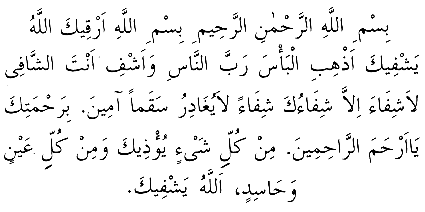 بِسْمِ اللَّهِ الرَّحْمٰنِ الرَّحِيمِ بِسْمِ اللَّهِ اَرْقِيكَ اللَّهُ
يَشْفِيكَ اَذْهِبِ الْبَأْسَ رَبَّ النَّاسِ وَاَشْفِ اَنْتَ الشَّافِى
لاَشِفَاءَ اِلاَّ شِفَاءُكَ شِفَاءً لاَيُغَادِرُ سَقَماً آمِينَ. بِرَحْمَتِكَ
يَااَرْحَمَ الرَّاحِمِينَ. مِنْ كُلِّ شَىْءٍ يُؤْذِيكَ وَمِنْ كُلِّ عَيْنٍ
وَحَاسِدٍ، اَللَّهُ يَشْفِيكَ.